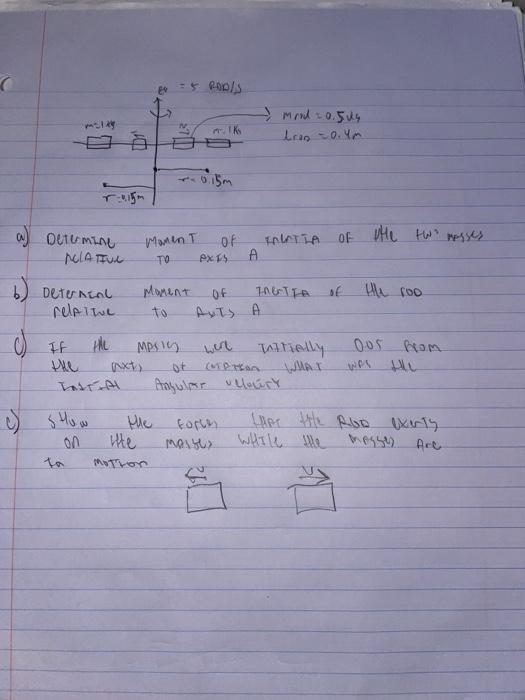 = 5 RAD/s
m=1kg
m=1kg
mrod = 0.5kg
Lrod = 0.4m
r=0.15m
r=0.15m
a) Determine Moment of Inertia of the two masses
relative to Axis A
b) Determine Moment of Inertia of the rod
relative to Axis A
c) If the masses were initially 0.05 from
the axis of rotation what was the
Initial Angular velocity
c) show the forces that the Rod exerts
on the masses while the masses are
in motion
v
v